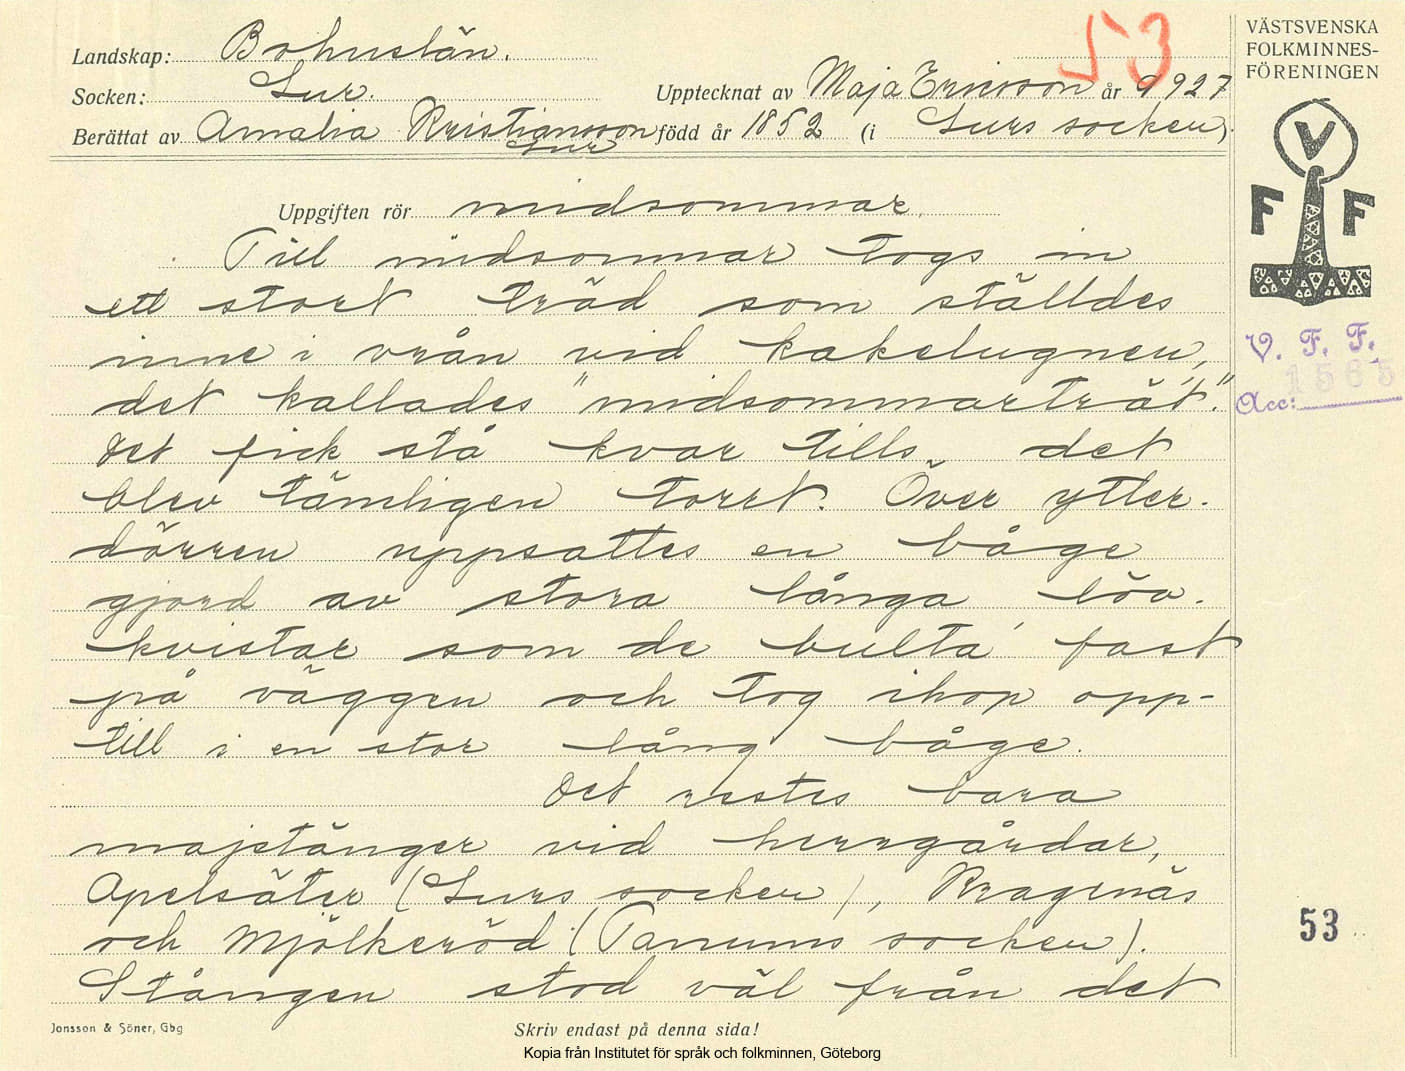 53
Landskap: Bohuslän.
Socken: Lur.
Upptecknat av Maja Ericsson år 1927
Berättat av Amalia Kristiansson född år 1852 (i Lurs socken).
Lur
Uppgiften rör midsommar.
Till midsommar togs in
ett stort träd som ställdes
inne i vrån vid kakelugnen,
det kallades "midsommarträt".
Det fick stå kvar tills det
blev tämligen torrt. Över ytter-
dörren uppsattes en båge
gjord av stora långa löv-
kvistar som de bulta' fast
på väggen och tog ihop opp-
till i en stor lång båge.
Det restes bara
majstänger vid herrgårdar,
Apelsäter (Lurs socken), Kragenäs
och Mjölkeröd (Tanums socken).
Stången stod väl från det
Jonsson & Söner, Gbg
Skriv endast på denna sida!
Kopia från Institutet för språk och folkminnen, Göteborg
VÄSTSVENSKA
FOLKMINNES-
FÖRENINGEN
V
F F
V. F. F.
1565
Acc:
53